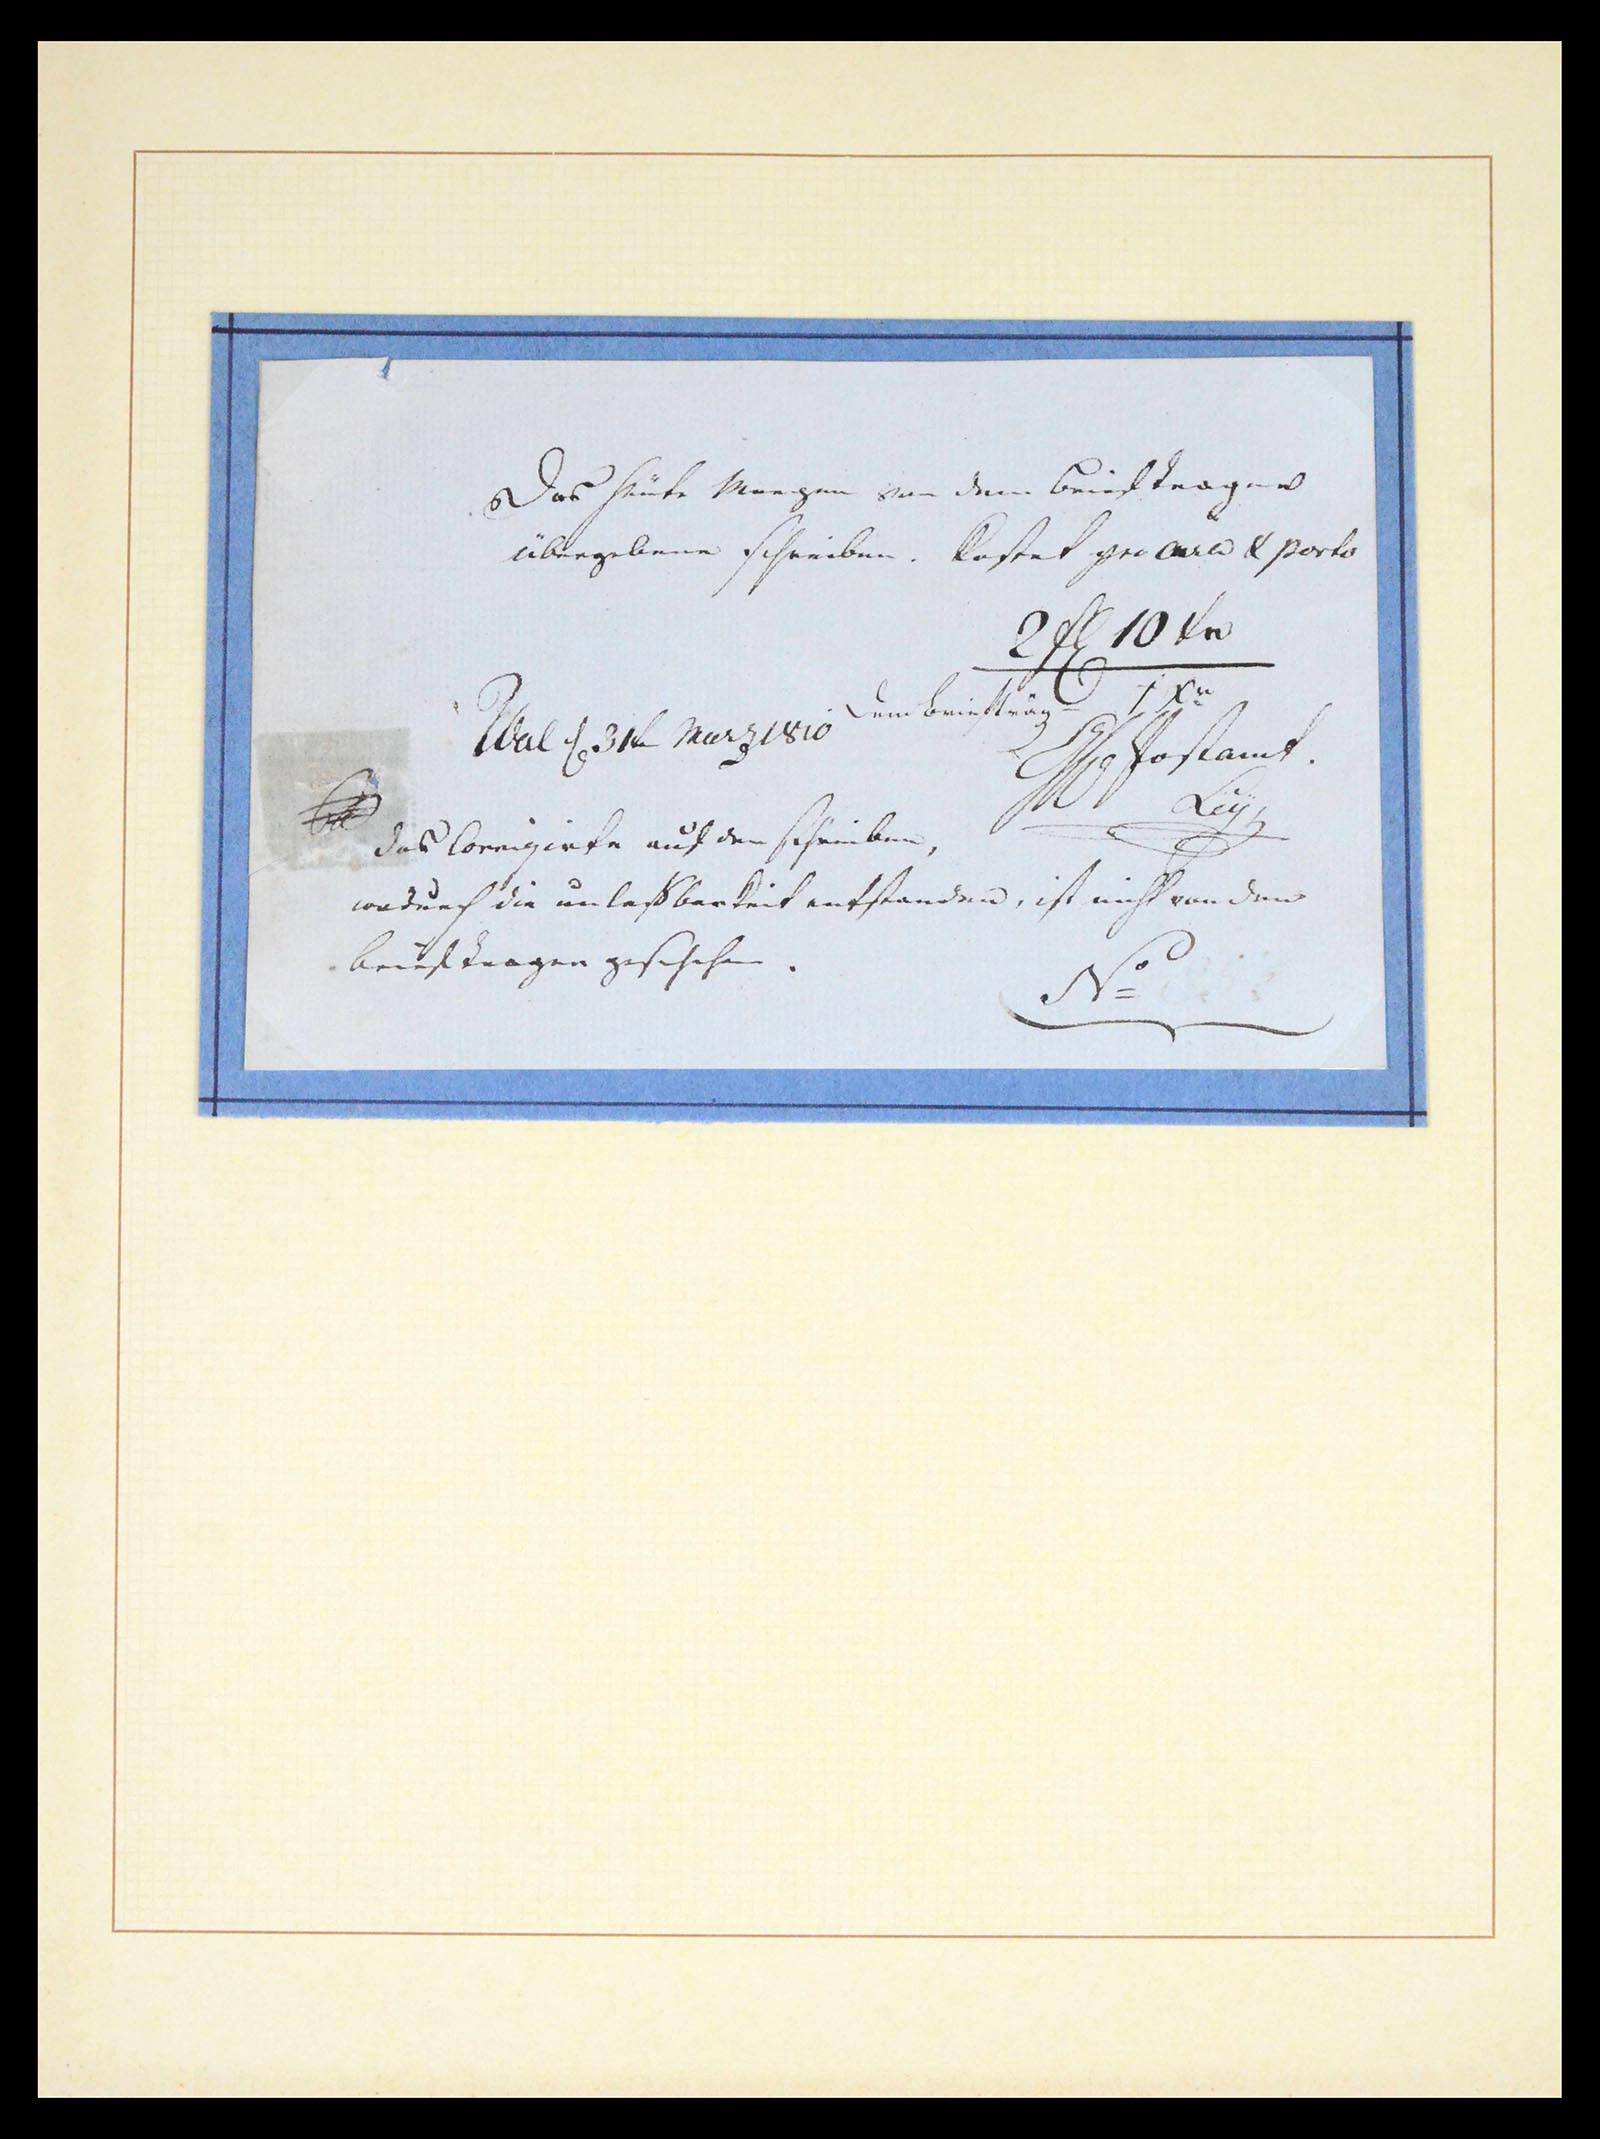 Das heute Morgen von dem briefträger
übergebene schreiben. kostet per Aura & porto
2 fl 10 kr
dem briefträg= 1 Xr
Wal d. 31ten Marz 1810
Postamt.
Ley
das Corrigirte auf dem schreiben,
wodurch die unleßbarkeit entstanden, ist nicht von dem
briefträger geschehen.
No